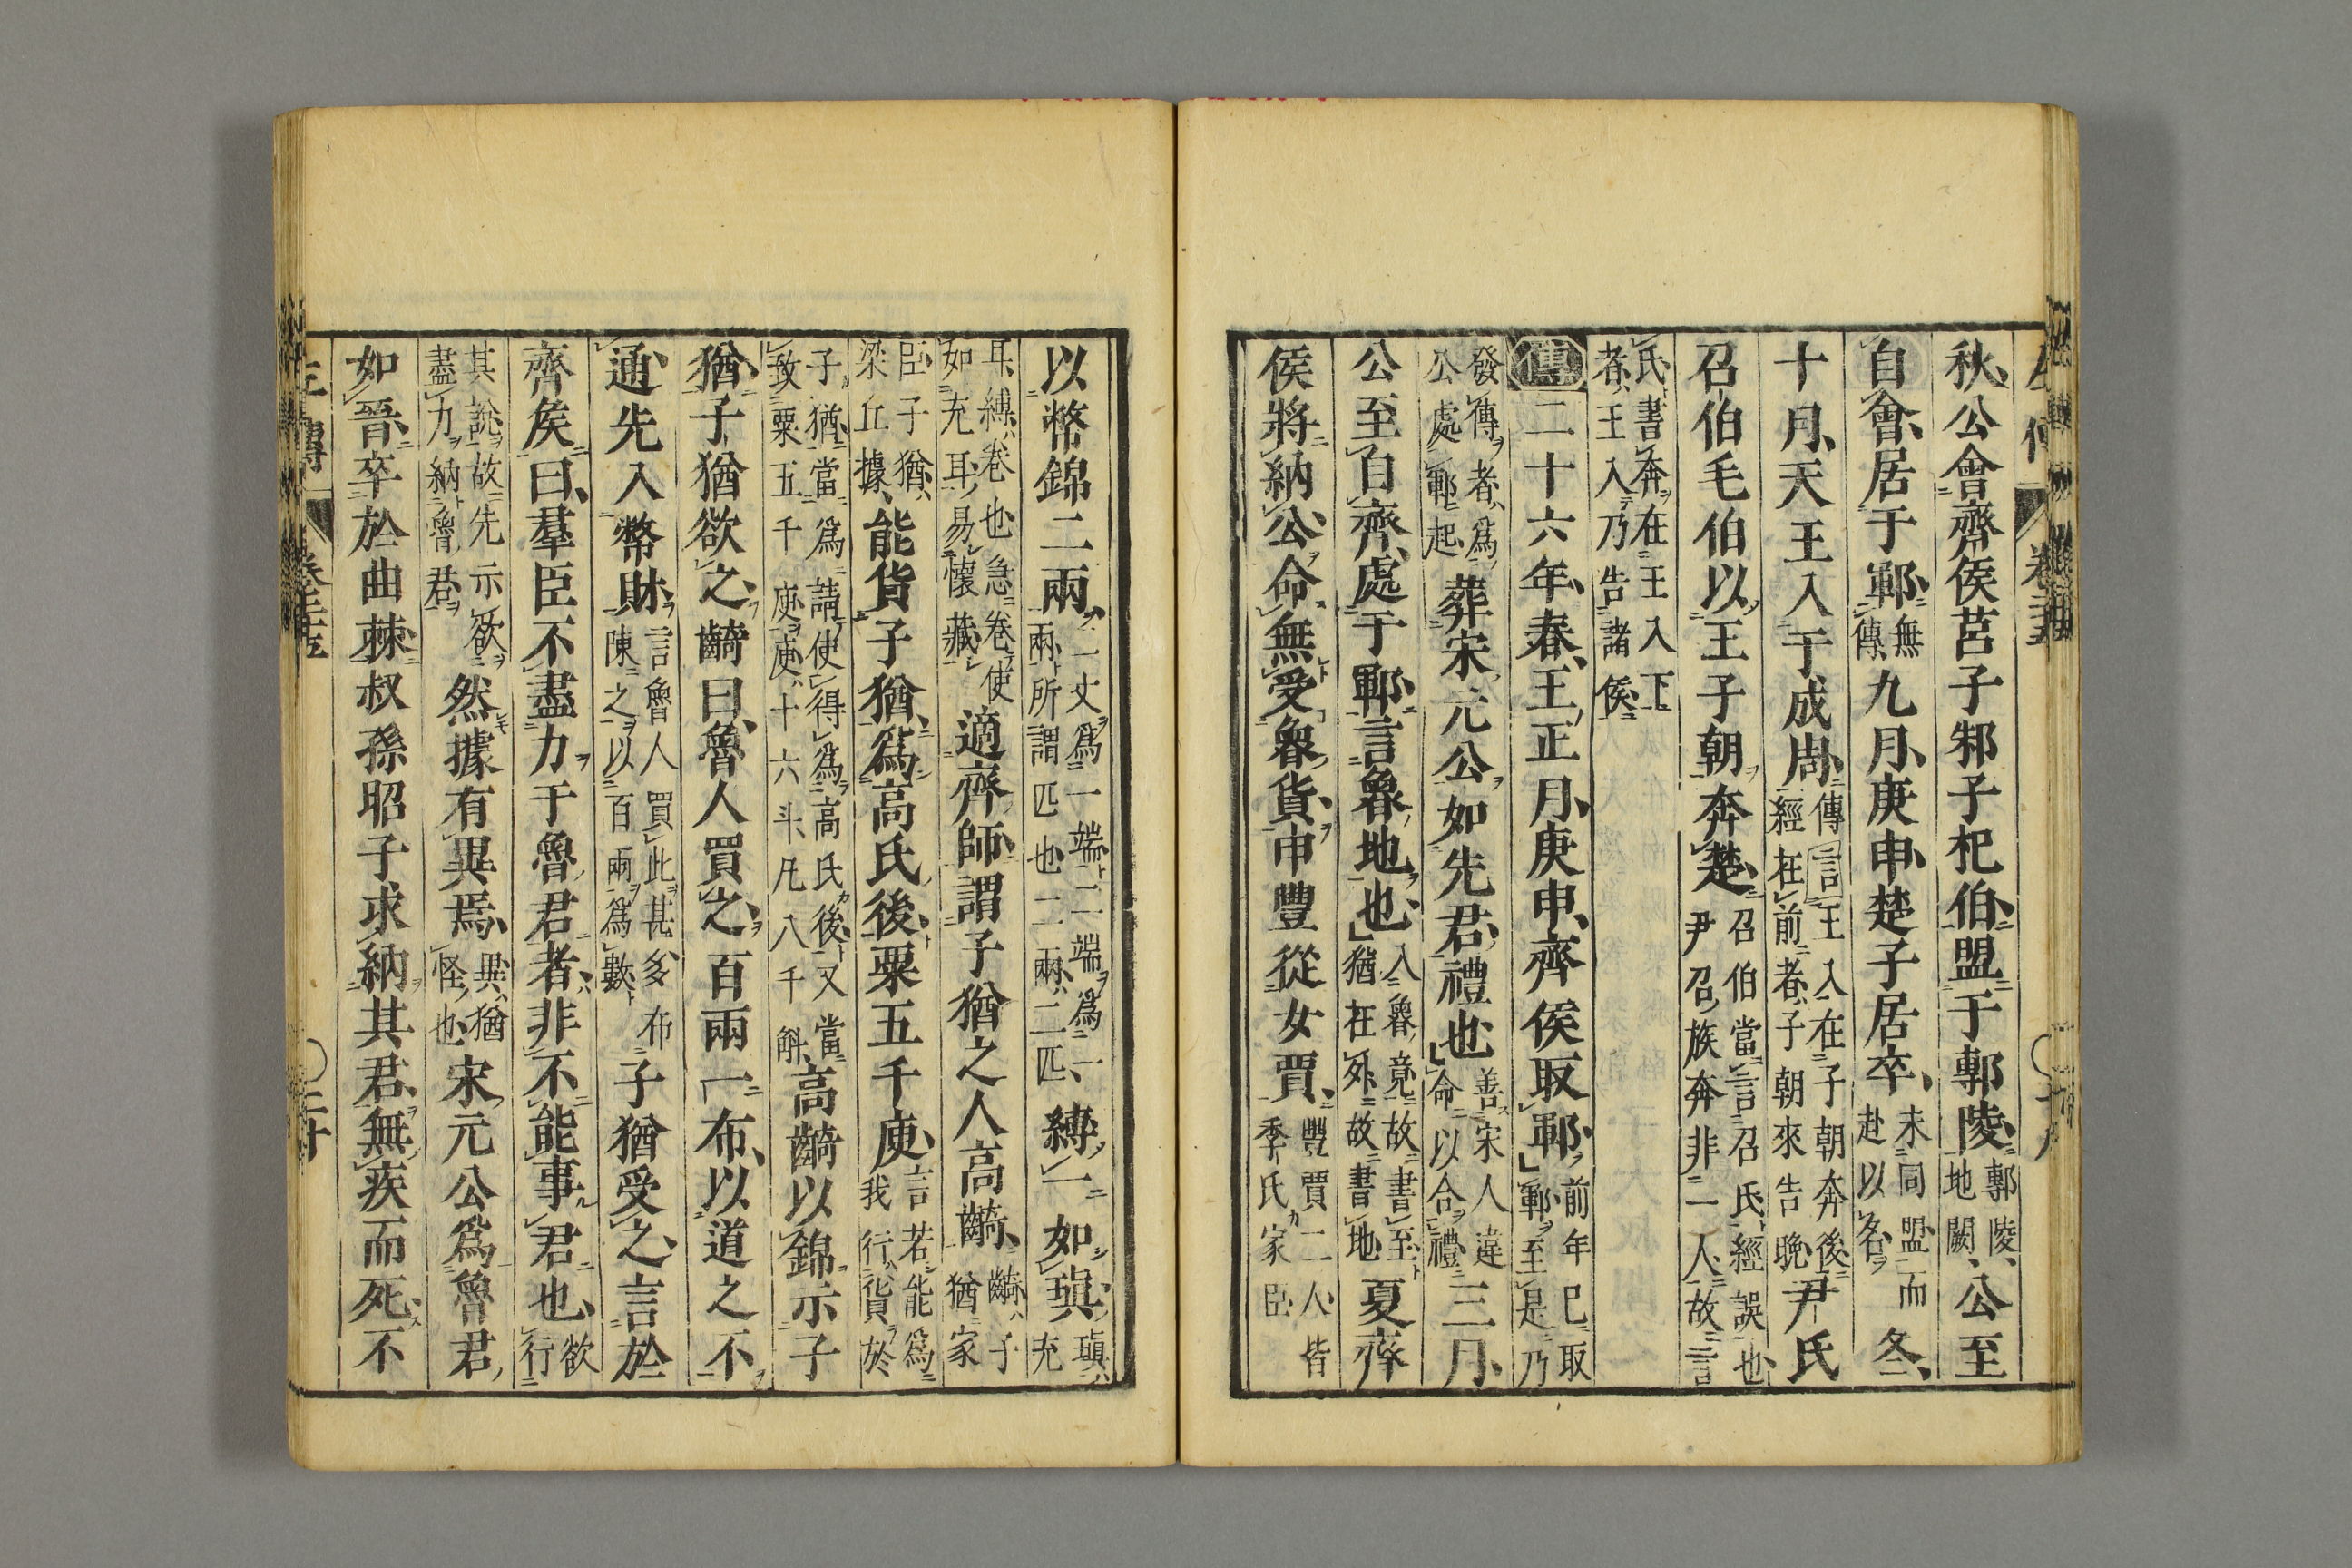 秋公會齊侯莒子邾子杞伯盟于鄟陵鄟陵地闕公至
自會居于鄆無傳九月庚申楚子居卒未同盟而赴以名冬
十月天王入于成周傳言王入在子朝奔後經在前者子朝來告晚尹氏
召伯毛伯以王子朝奔楚召伯當言召氏經誤也尹召族奔非一人故言
氏書奔在王入下者王入乃告諸侯
傳二十六年春王正月庚申齊侯取鄆前年已取鄆至是乃
發傳者爲公處鄆起葬宋元公如先君禮也善宋人違命以合禮三月
公至自齊處于鄆言魯地也入魯竟故書至猶在外故書地夏齊
侯將納公命無受魯貨申豐從女賈豐賈二人皆季氏家臣
以幣錦二兩二丈爲一端二端爲一兩所謂匹也二兩二匹縛一如瑱瑱充
耳縛卷也急卷使如充耳易懷藏適齊師謂子猶之人高齮齮子猶家
臣子猶梁丘據能貨子猶爲高氏後粟五千庾言若能爲我行貨於
子猶當爲請使得爲高氏後又當致粟五千庾庾十六斗凡八千斛高齮以錦示子
猶子猶欲之齮曰魯人買之百兩一布以道之不
通先入幣財言魯人買此甚多布陳之以百兩爲數子猶受之言於
齊侯曰羣臣不盡力于魯君者非不能事君也欲行
其說故先示欲盡力納魯君然據有異焉異猶怪也宋元公爲魯君
如晉卒於曲棘叔孫昭子求納其君無疾而死不
左傳 卷二十五 二十